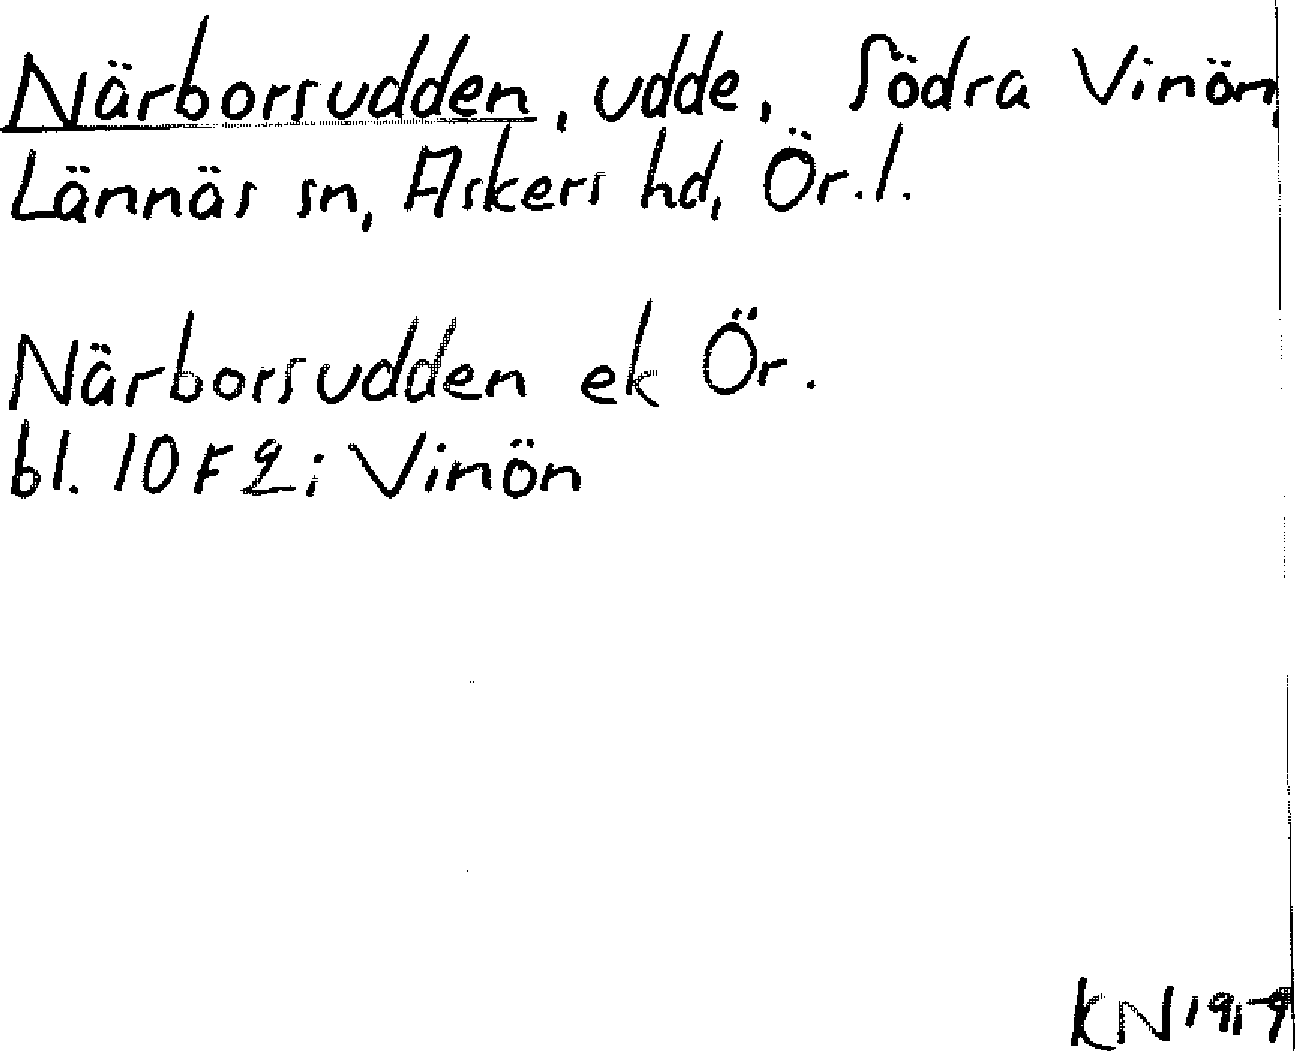 Närborsudden, udde, Södra Vinön,
Lännäs sn, Askers hd, Ör.l.
Närborsudden ek Ör.
bl. 10 F 2 i Vinön
KN